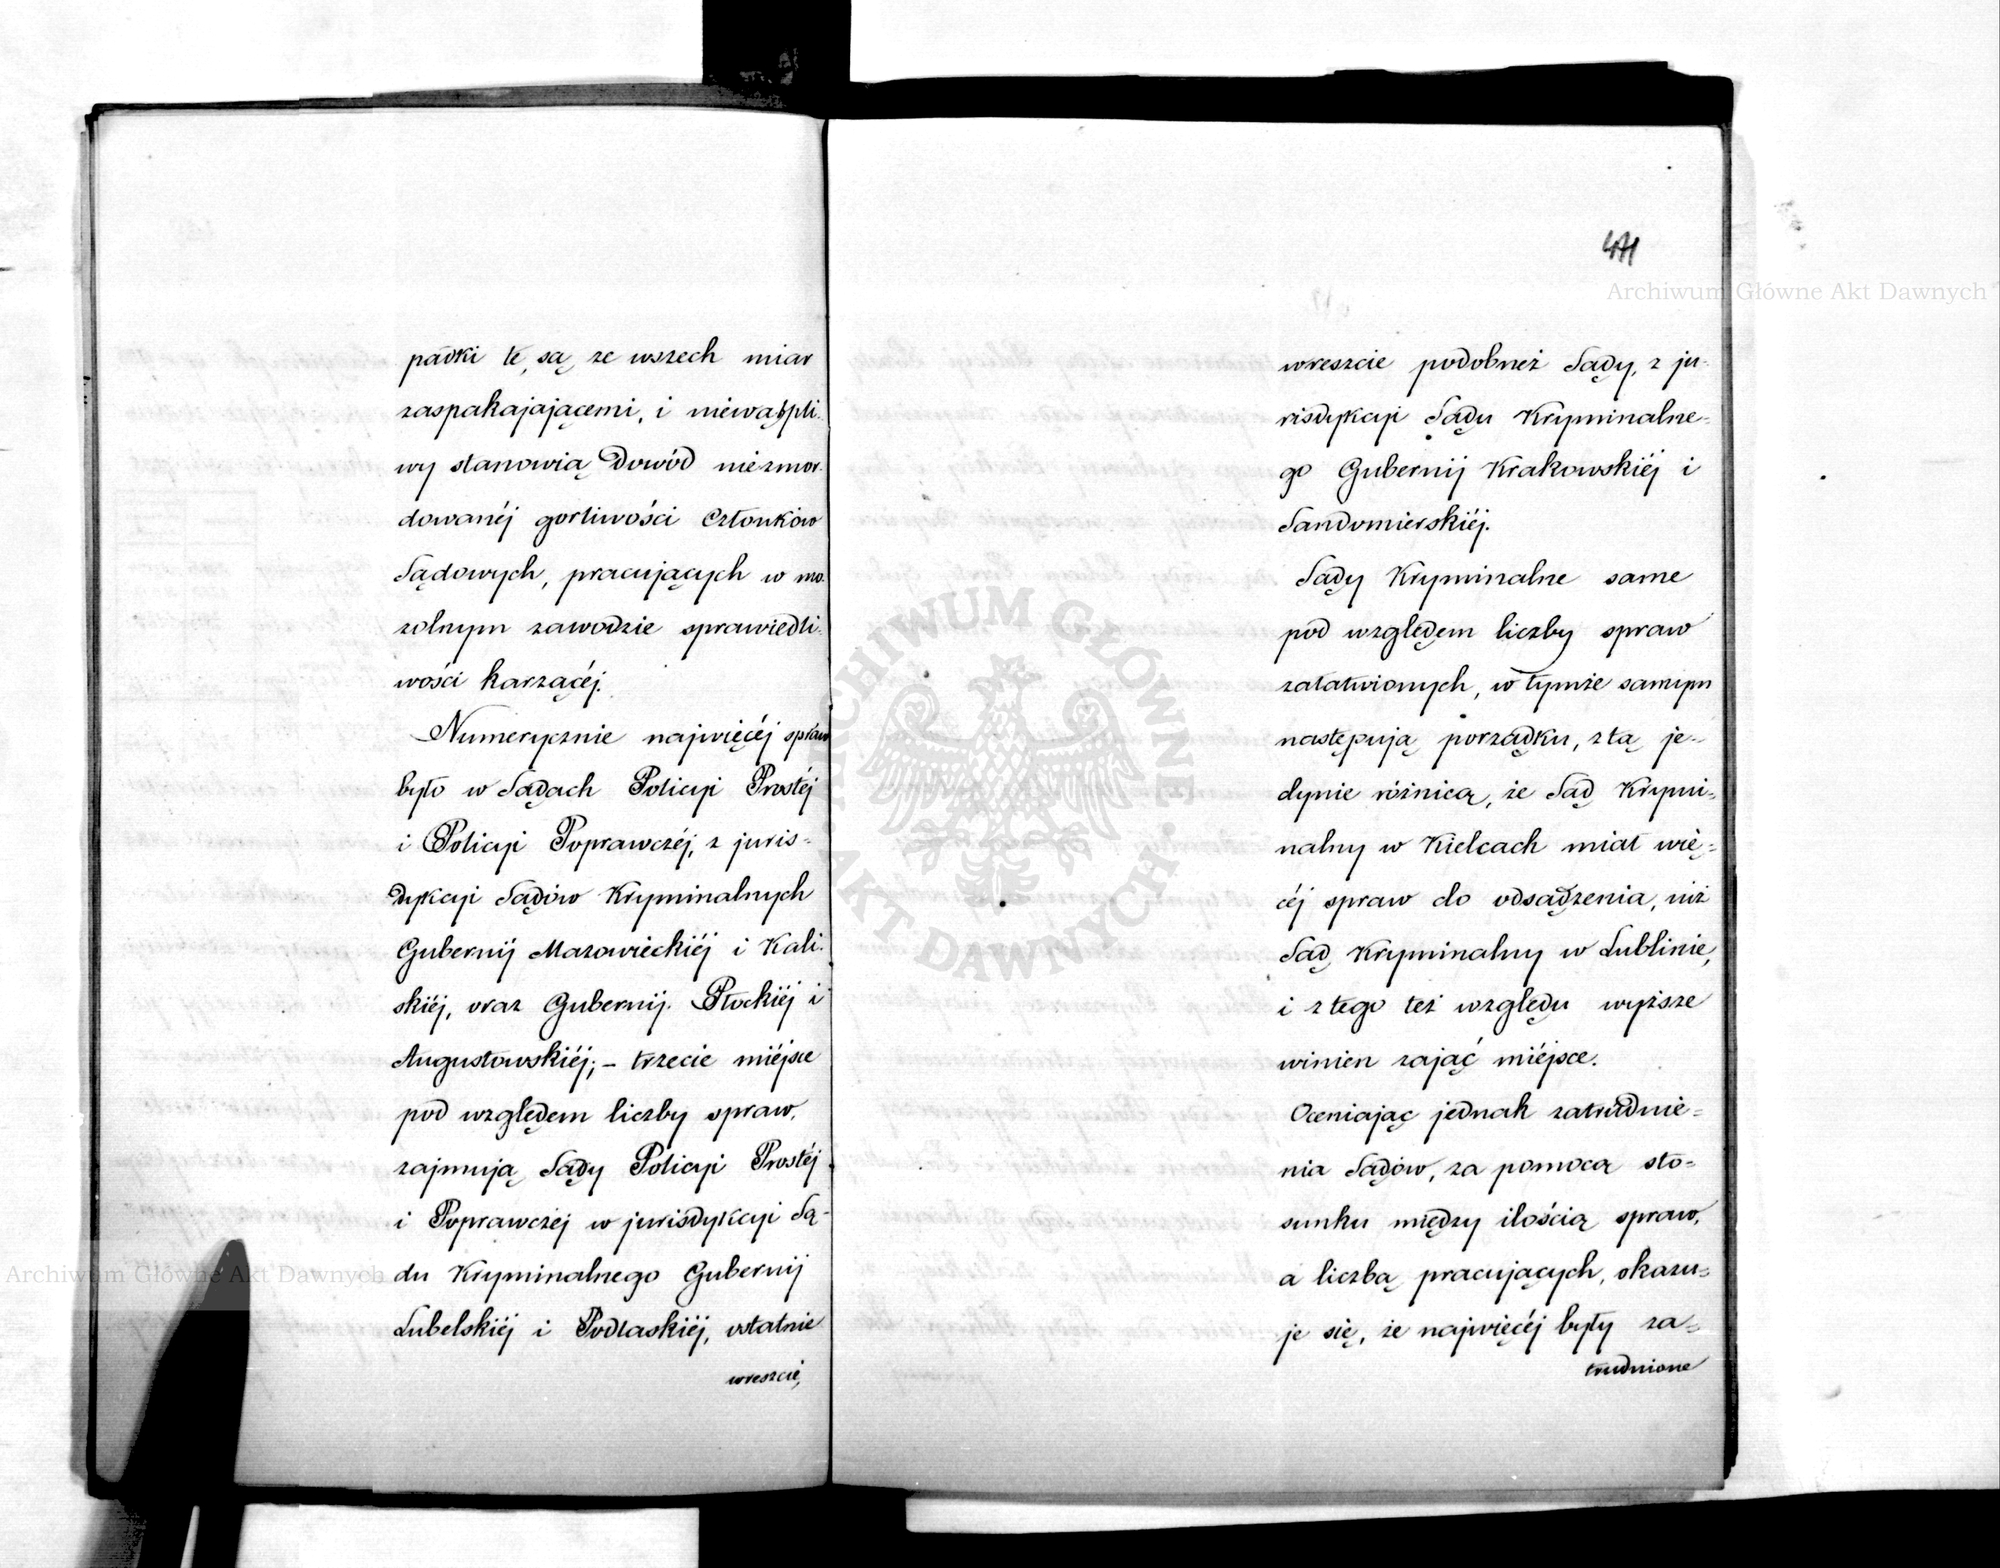 padki te, są ze wszech miar
zaspakajającemi, i niewątpli-
wy stanowią Dowód niezmor-
dowanéj gorliwości Członków
Sądowych, pracujących w mo-
zolnym zawodzie sprawiedli-
wości karzącéj.
Numerycznie najwięcéj spraw
było w Sądach Policyi Prostéj
i Policyi Poprawczéj, z juris-
dykcyi Sądów Kryminalnych
Gubernij Mazowieckiéj i Kali-
skiéj, oraz Gubernij Płockiéj i
Augustowskiéj; – trzecie miéjsce
pod względem liczby spraw,
zajmują Sądy Policyi Prostéj
i Poprawczéj w jurisdykcyi Są-
du Kryminalnego Gubernij
Lubelskiéj i Podlaskiéj, ostatnie
wreszcie,
wreszcie podobnéż Sądy, z ju-
risdykcyi Sądu Kryminalne-
go Gubernij Krakowskiéj i
Sandomierskiéj.
Sądy Kryminalne same
pod względem liczby spraw
załatwionych, w tymże samym
następują porządku, z tą je-
dynie różnicą, że Sąd Krymi-
nalny w Kielcach miał wię-
céj spraw do odsądzenia, niż
Sąd Kryminalny w Lublinie,
i z tego też względu wyższe
winien zająć miéjsce.
Oceniając jednak zatrudnie-
nia Sądów, za pomocą sto-
sunku między ilością spraw,
a liczbą pracujących, okazu-
je się, że najwięcéj były za-
trudnione
Archiwum Główne Akt Dawnych
Archiwum Główne Akt Dawnych
ARCHIWUM GŁÓWNE AKT DAWNYCH